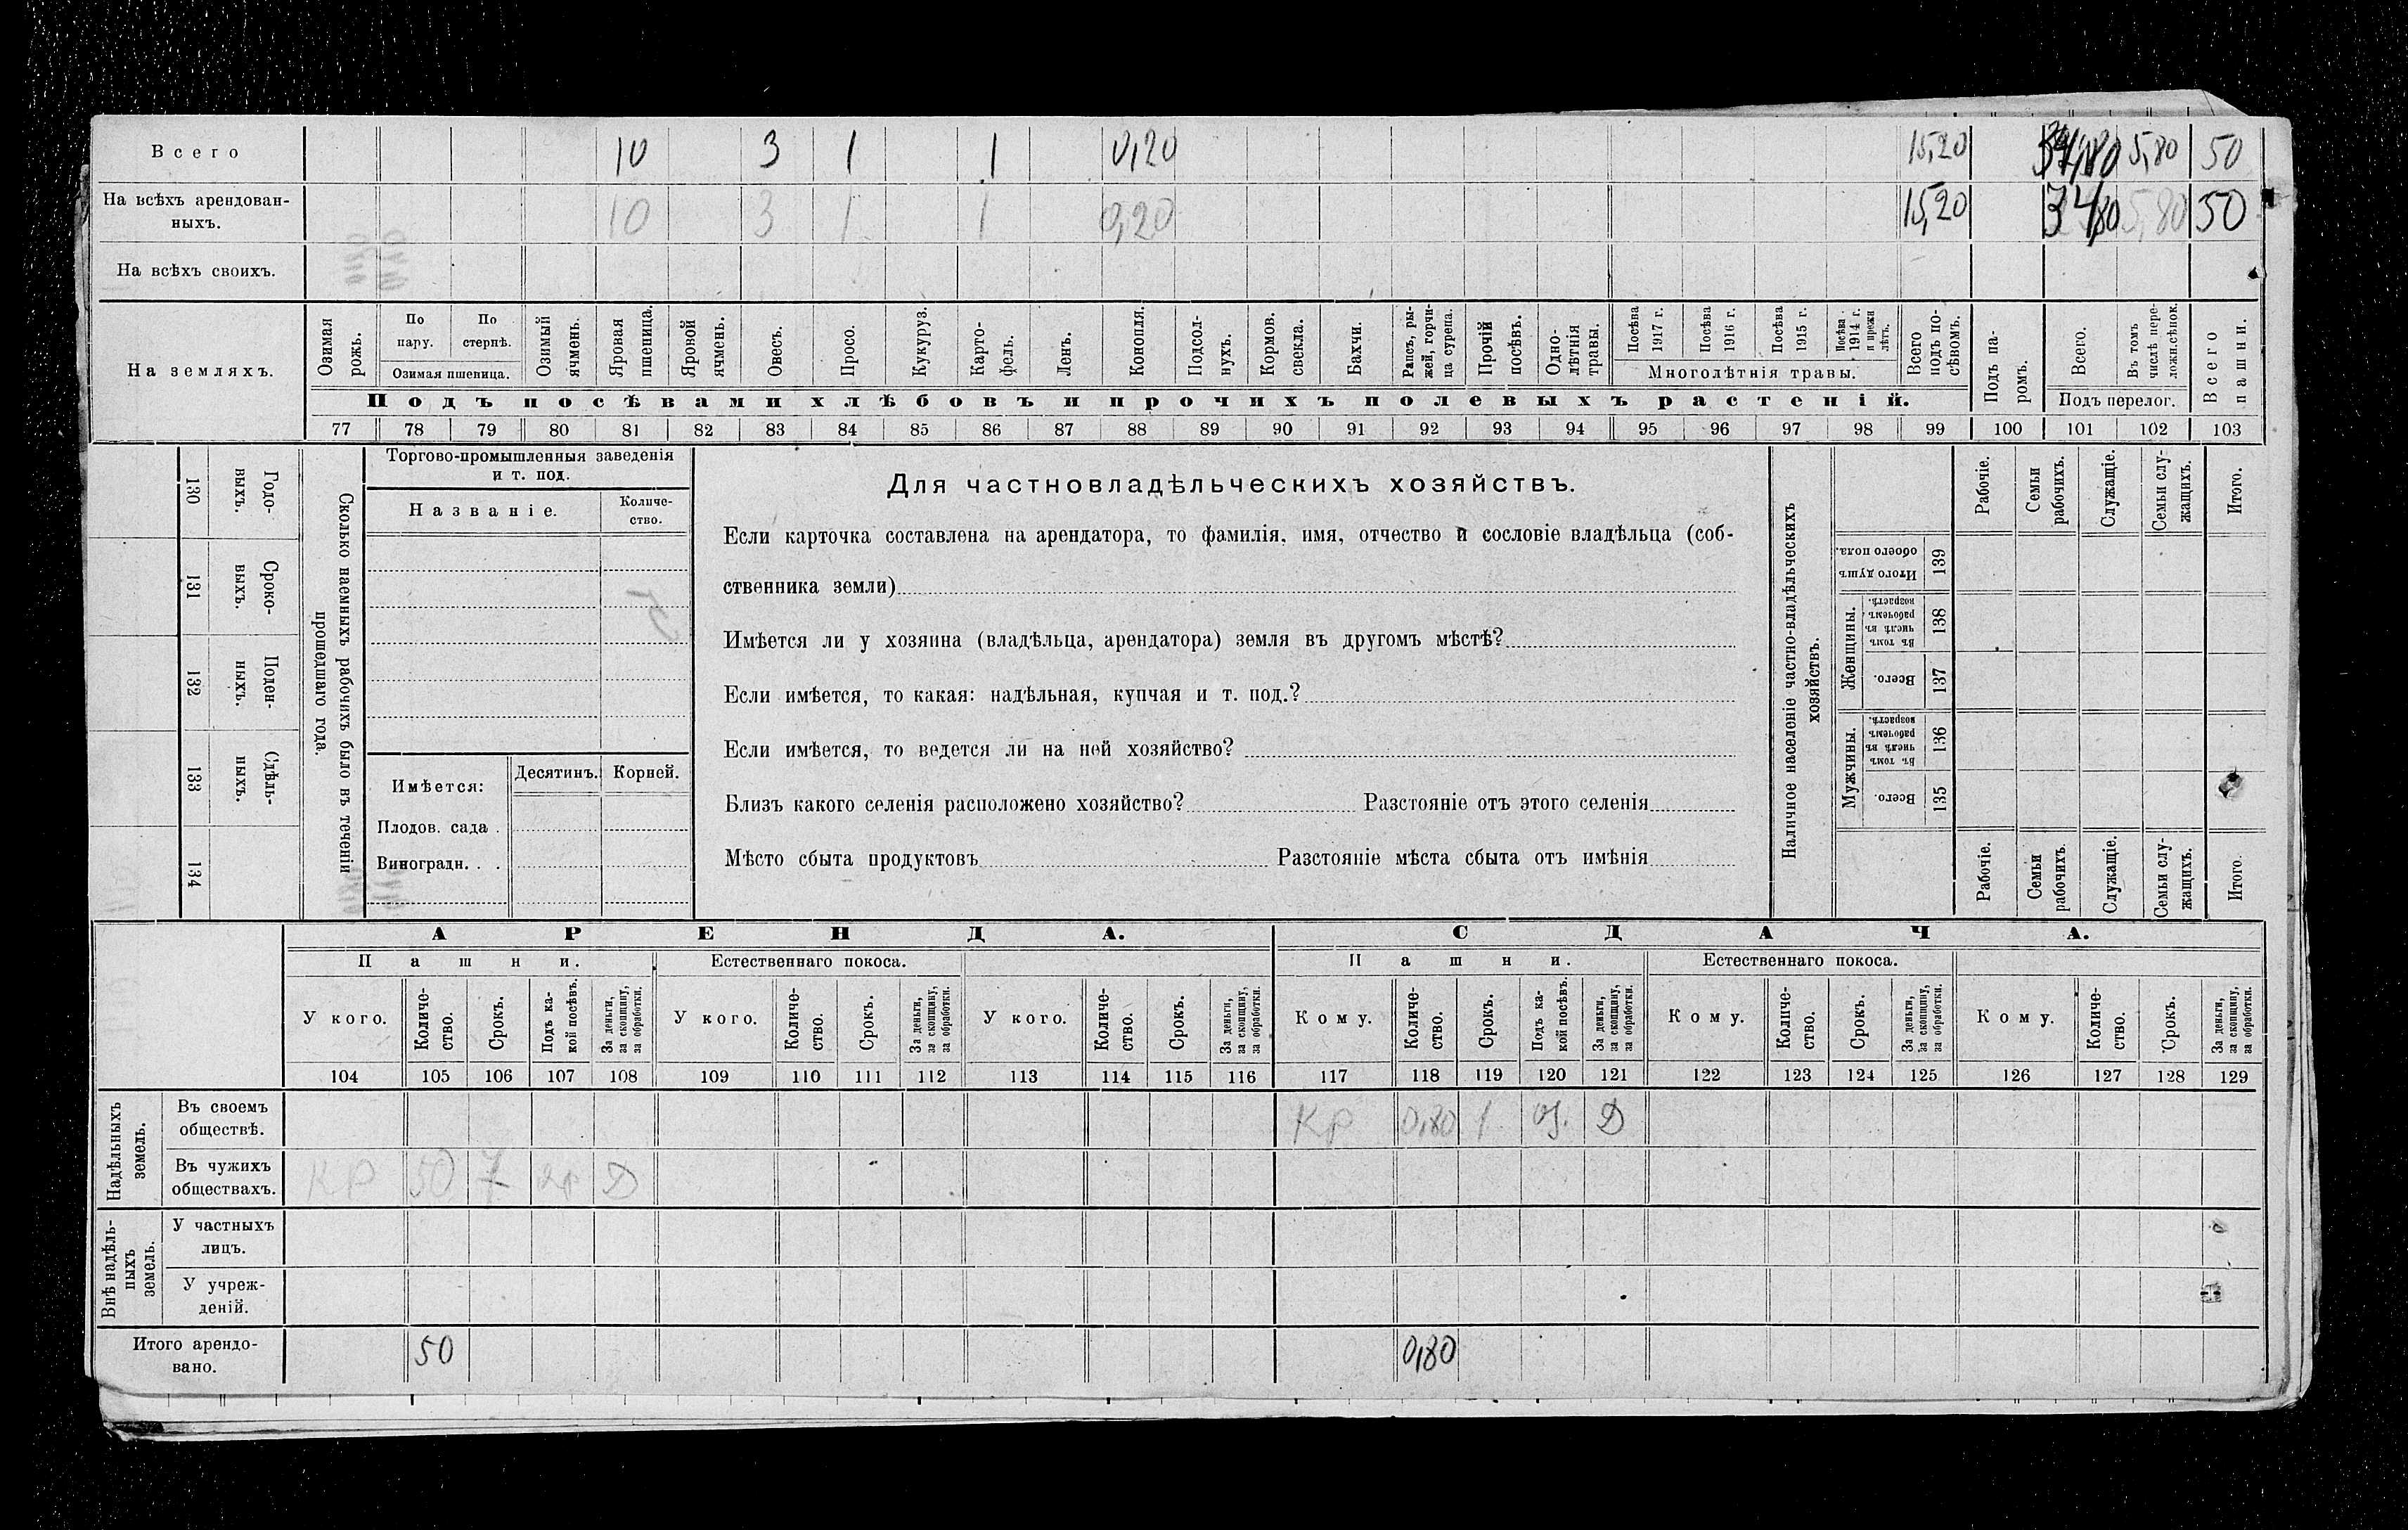 Всего 10 3 1 1 0,20 15,20 34,80 5,80 50
На всѣхъ арендован-
ныхъ. 10 3 1 1 0,20 15,20 34,80 5,80 50
На всѣхъ своихъ.
На земляхъ.
Озимая рожь.
По пару.
По стернѣ.
Озимая пшеница.
Озимый ячмень.
Яровая пшеница.
Яровой ячмень.
Овесъ.
Просо.
Кукуруз.
Карто-
фель.
Ленъ.
Конопля.
Подсол-
нухъ.
Кормов. свекла.
Бахчи.
Рапсъ, ры-
жей, горчи-
ца сурепа.
Прочій посѣвъ.
Одно-
лѣтнія травы.
Посѣва 1917 г.
Посѣва 1916 г.
Посѣва 1915 г.
Посѣва 1914 г. и прежн лѣтъ.
Многолѣтнія травы.
Всего подъ по-
сѣвомъ.
Подъ па-
ромъ.
Всего.
Въ томъ числѣ пере-
ложн.сѣнок.
Подъ перелог.
Всего пашни.
Подъ посѣвами хлѣбовъ и прочихъ полевыхъ растеній.
77 78 79 80 81 82 83 84 85 86 87 88 89 90 91 92 93 94 95 96 97 98 99 100 101 102 103
130 Годо-
выхъ.
131 Сроко-
выхъ.
132 Поден-
ныхъ.
133 Сдѣль-
ныхъ.
134
Сколько наемныхъ рабочихъ было въ теченіи
прошедшаго года.
Торгово-промышленныя заведенія
и т. под.
Названіе.
Количе-
ство.
Имѣется:
Десятинъ.
Корней.
Плодов. сада .
Виноградн. . .
Для частновладѣльческихъ хозяйствъ.
Если карточка составлена на арендатора, то фамилія, имя, отчество и сословіе владѣльца (соб-
ственника земли)
Имѣется ли у хозяина (владѣльца, арендатора) земля въ другомъ мѣстѣ?
Если имѣется, то какая: надѣльная, купчая и т. под.?
Если имѣется, то ведется ли на ней хозяйство?
Близъ какого селенія расположено хозяйство? Разстояніе отъ этого селенія
Мѣсто сбыта продуктовъ Разстояніе мѣста сбыта отъ имѣнія
Наличное населеніе частно-владѣльческихъ
хозяйствъ.
Рабочіе.
Семьи рабочихъ.
Служащіе.
Семьи слу-
жащихъ.
Итого.
Итого душъ обоего пола. 139
Женщины.
Въ томъ числѣ въ рабочемъ возрастѣ. 138
Всего. 137
Мужчины.
Въ томъ числѣ въ рабочемъ возрастѣ. 136
Всего. 135
Рабочіе.
Семьи рабочихъ.
Служащіе.
Семьи слу-
жащихъ.
Итого.
АРЕНДА. СДАЧА.
Пашни. Естественнаго покоса. Пашни. Естественнаго покоса.
У кого.
Количе-
ство.
Срокъ.
Подъ ка-
кой посѣвъ.
За деньги, за скопщину, за обработки.
У кого.
Количе-
ство.
Срокъ.
За деньги, за скопщину, за обработки.
У кого.
Количе-
ство.
Срокъ.
За деньги, за скопщину, за обработки.
Кому.
Количе-
ство.
Срокъ.
Подъ ка-
кой посѣвъ.
За деньги, за скопщину, за обработки.
Кому.
Количе-
ство.
Срокъ.
За деньги, за скопщину, за обработки.
Кому.
Количе-
ство.
Срокъ.
За деньги, за скопщину, за обработки.
104 105 106 107 108 109 110 111 112 113 114 115 116 117 118 119 120 121 122 123 124 125 126 127 128 129
Надѣльныхъ земель.
Въ своемъ
обществѣ. Кр 0,80 1 оз. Д
Въ чужихъ
обществахъ. Кр 50 7 Д
Внѣ надѣль-
ныхъ земель.
У частныхъ
лицъ.
У учреж-
деній.
Итого арендо-
вано. 50 0,80